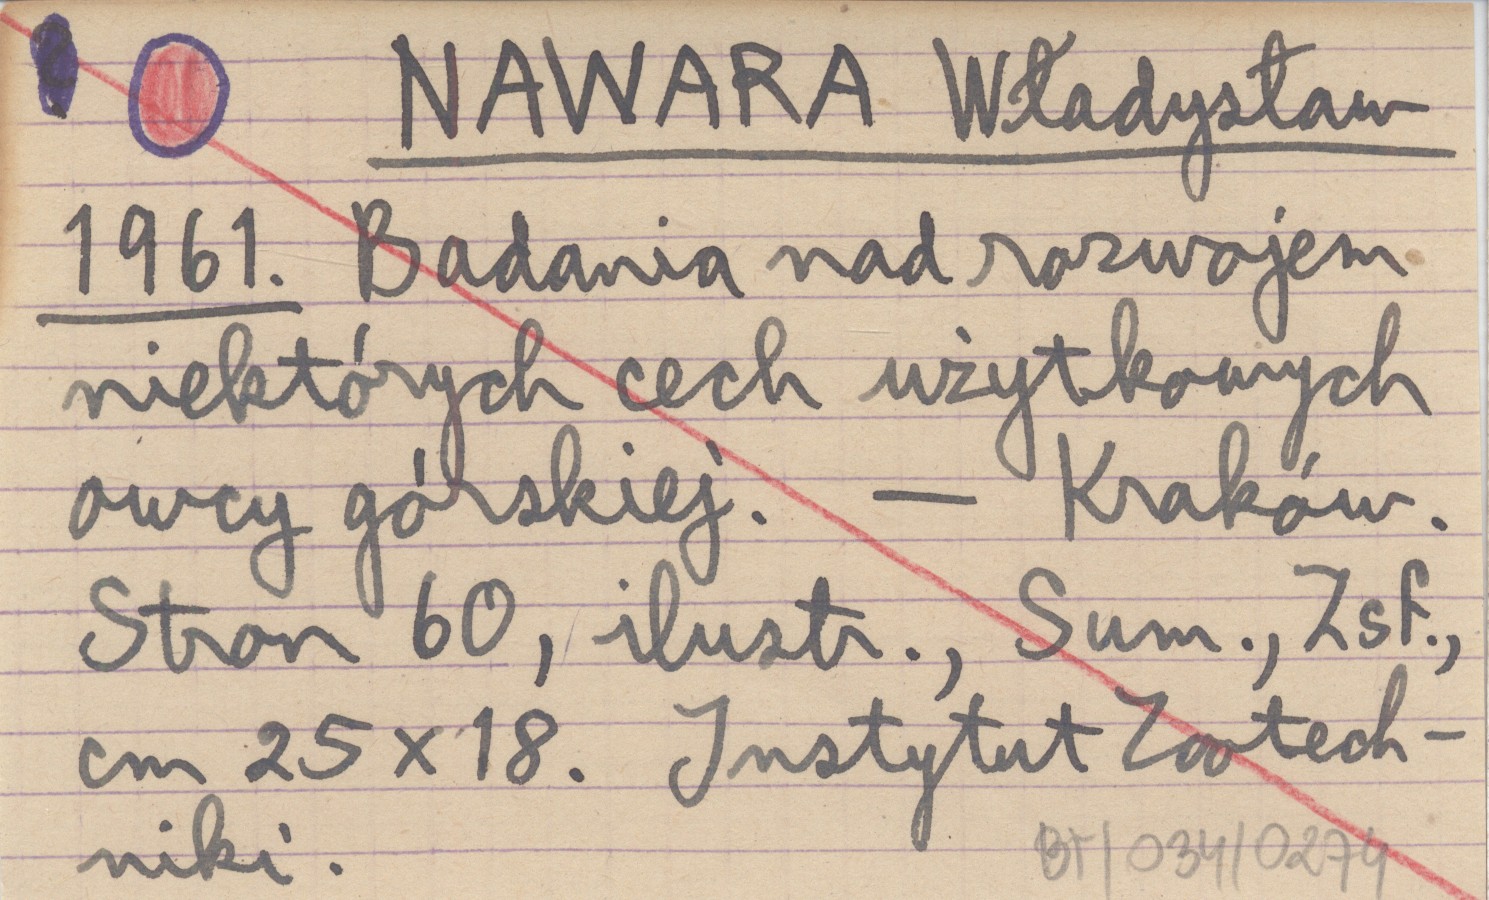 NAWARA Władysław
1961. Badania nad rozwojem
niektórych cech użytkowych
owcy górskiej. — Kraków.
Stron 60, ilustr., Sum., Zsf.,
cm 25 x 18. Instytut Zootech-
niki.
BT/034/0274